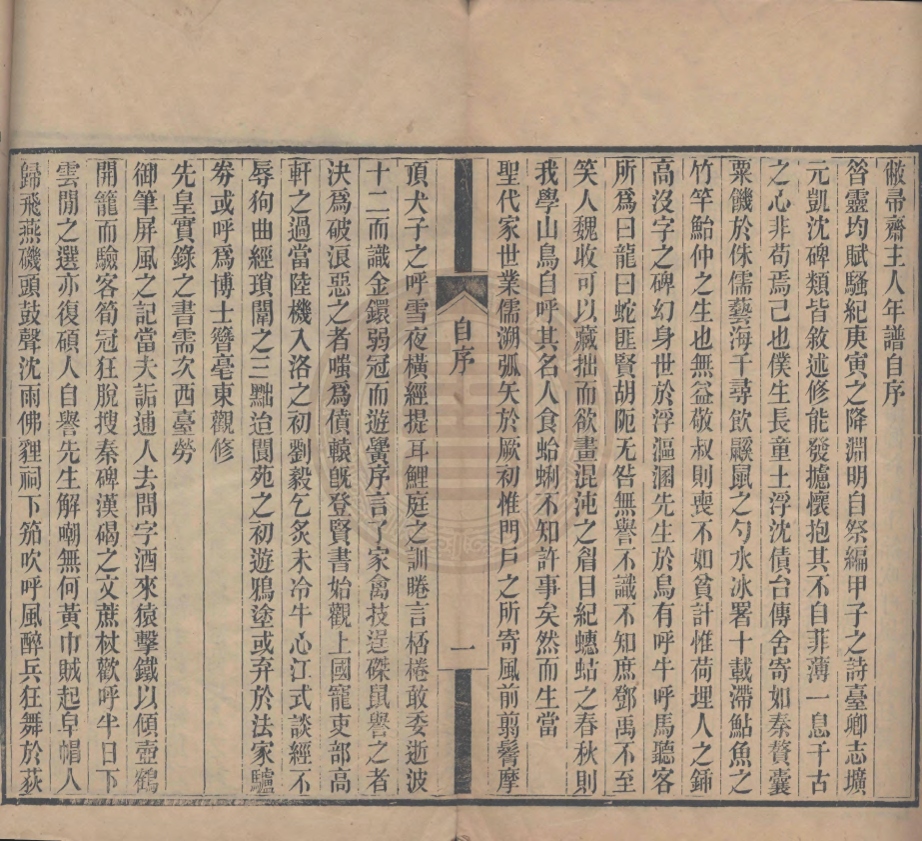 敝帚齋主人年譜自序
昝靈均賦騷紀庚寅之降淵明自祭編甲子之詩臺卿志壙
元凱沈碑類皆敘述修能發攄懷抱其不自菲薄一息千古
之心非苟焉已也僕生長童土浮沈債台傳舍寄如秦贅囊
粟饑於侏儒藝海千尋飲鼷鼠之勺水冰署十載滯鮎魚之
竹竿鮐仲之生也無益敬叔則喪不如貧計惟荷埋人之鍤
高沒字之碑幻身世於浮漚溷先生於烏有呼牛呼馬聽客
所爲曰龍曰蛇匪賢胡阨无咎無譽不識不知庶鄧禹不至
笑人魏收可以藏拙而欲畫混沌之眉目紀蟪蛄之春秋則
我學山鳥自呼其名人食蛤蜊不知許事矣然而生當
聖代家世業儒溯弧矢於厥初惟門戶之所寄風前翦鬌摩
自序
一
頂犬子之呼雪夜橫經提耳鯉庭之訓睠言桮棬敢委逝波
十二而識金鐶弱冠而遊黌序言了家禽技逞磔鼠譽之者
決爲破浪惡之者嗤爲僨轅旣登賢書始觀上國寵吏部高
軒之過當陸機入洛之初劉毅乞炙未冷牛心江式談經不
辱狗曲經瑣闈之三黜迨閬苑之初遊鴉塗或弃於法家驢
券或呼爲博士簪毫東觀修
先皇實錄之書需次西臺勞
御筆屏風之記當夫詬逋人去問字酒來猿擊鐵以傾壺鶴
開籠而驗客筍冠狂脫搜秦碑漢碣之文蔗杖歡呼半日下
雲閒之選亦復碩人自譽先生解嘲無何黃巾賊起皁帽人
歸飛燕磯頭鼓聲沈雨佛貍祠下笳吹呼風醉兵狂舞於荻